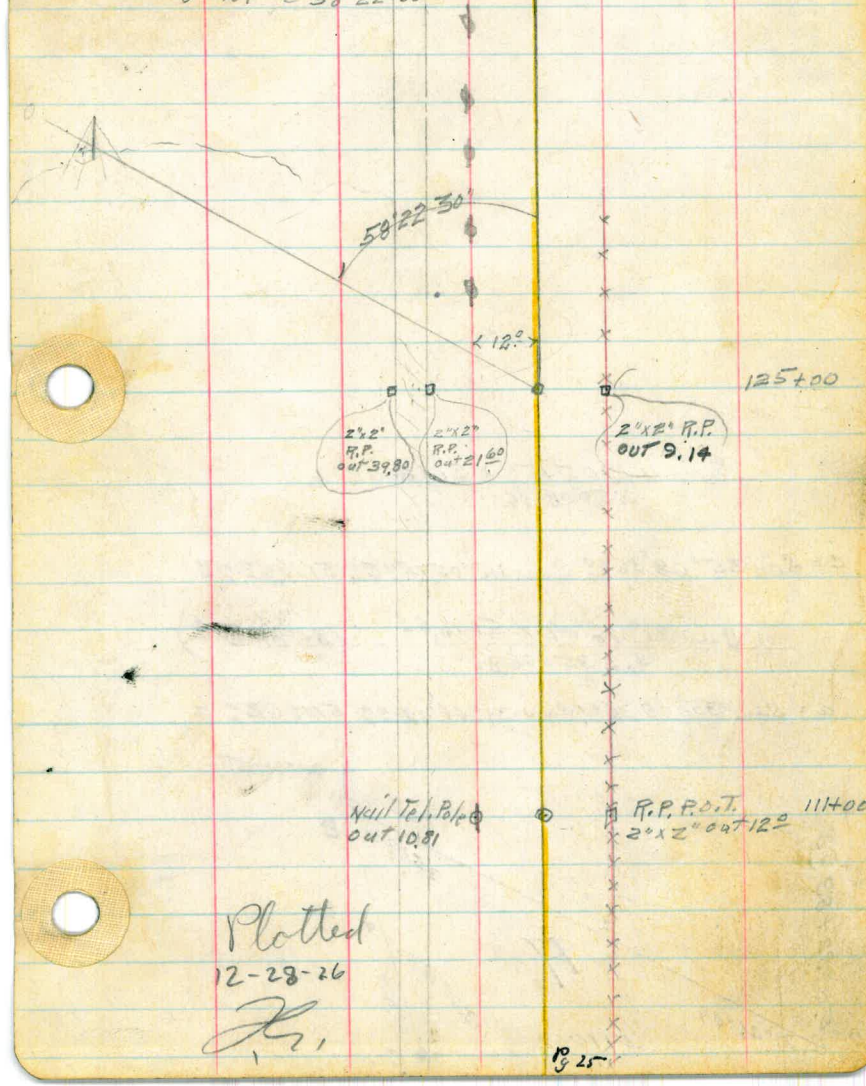 58°22'30"
12.0
125+00
2"x2"
R.P.
out 39.80
2"x2"
R.P.
out 21.60
2"x2" R.P.
out 9.14
Nail Tel. Pole
out 10.81
R.P. P.O.T.
2"x2" out 12.0
111+00
Plotted
12-28-26
Pg 25